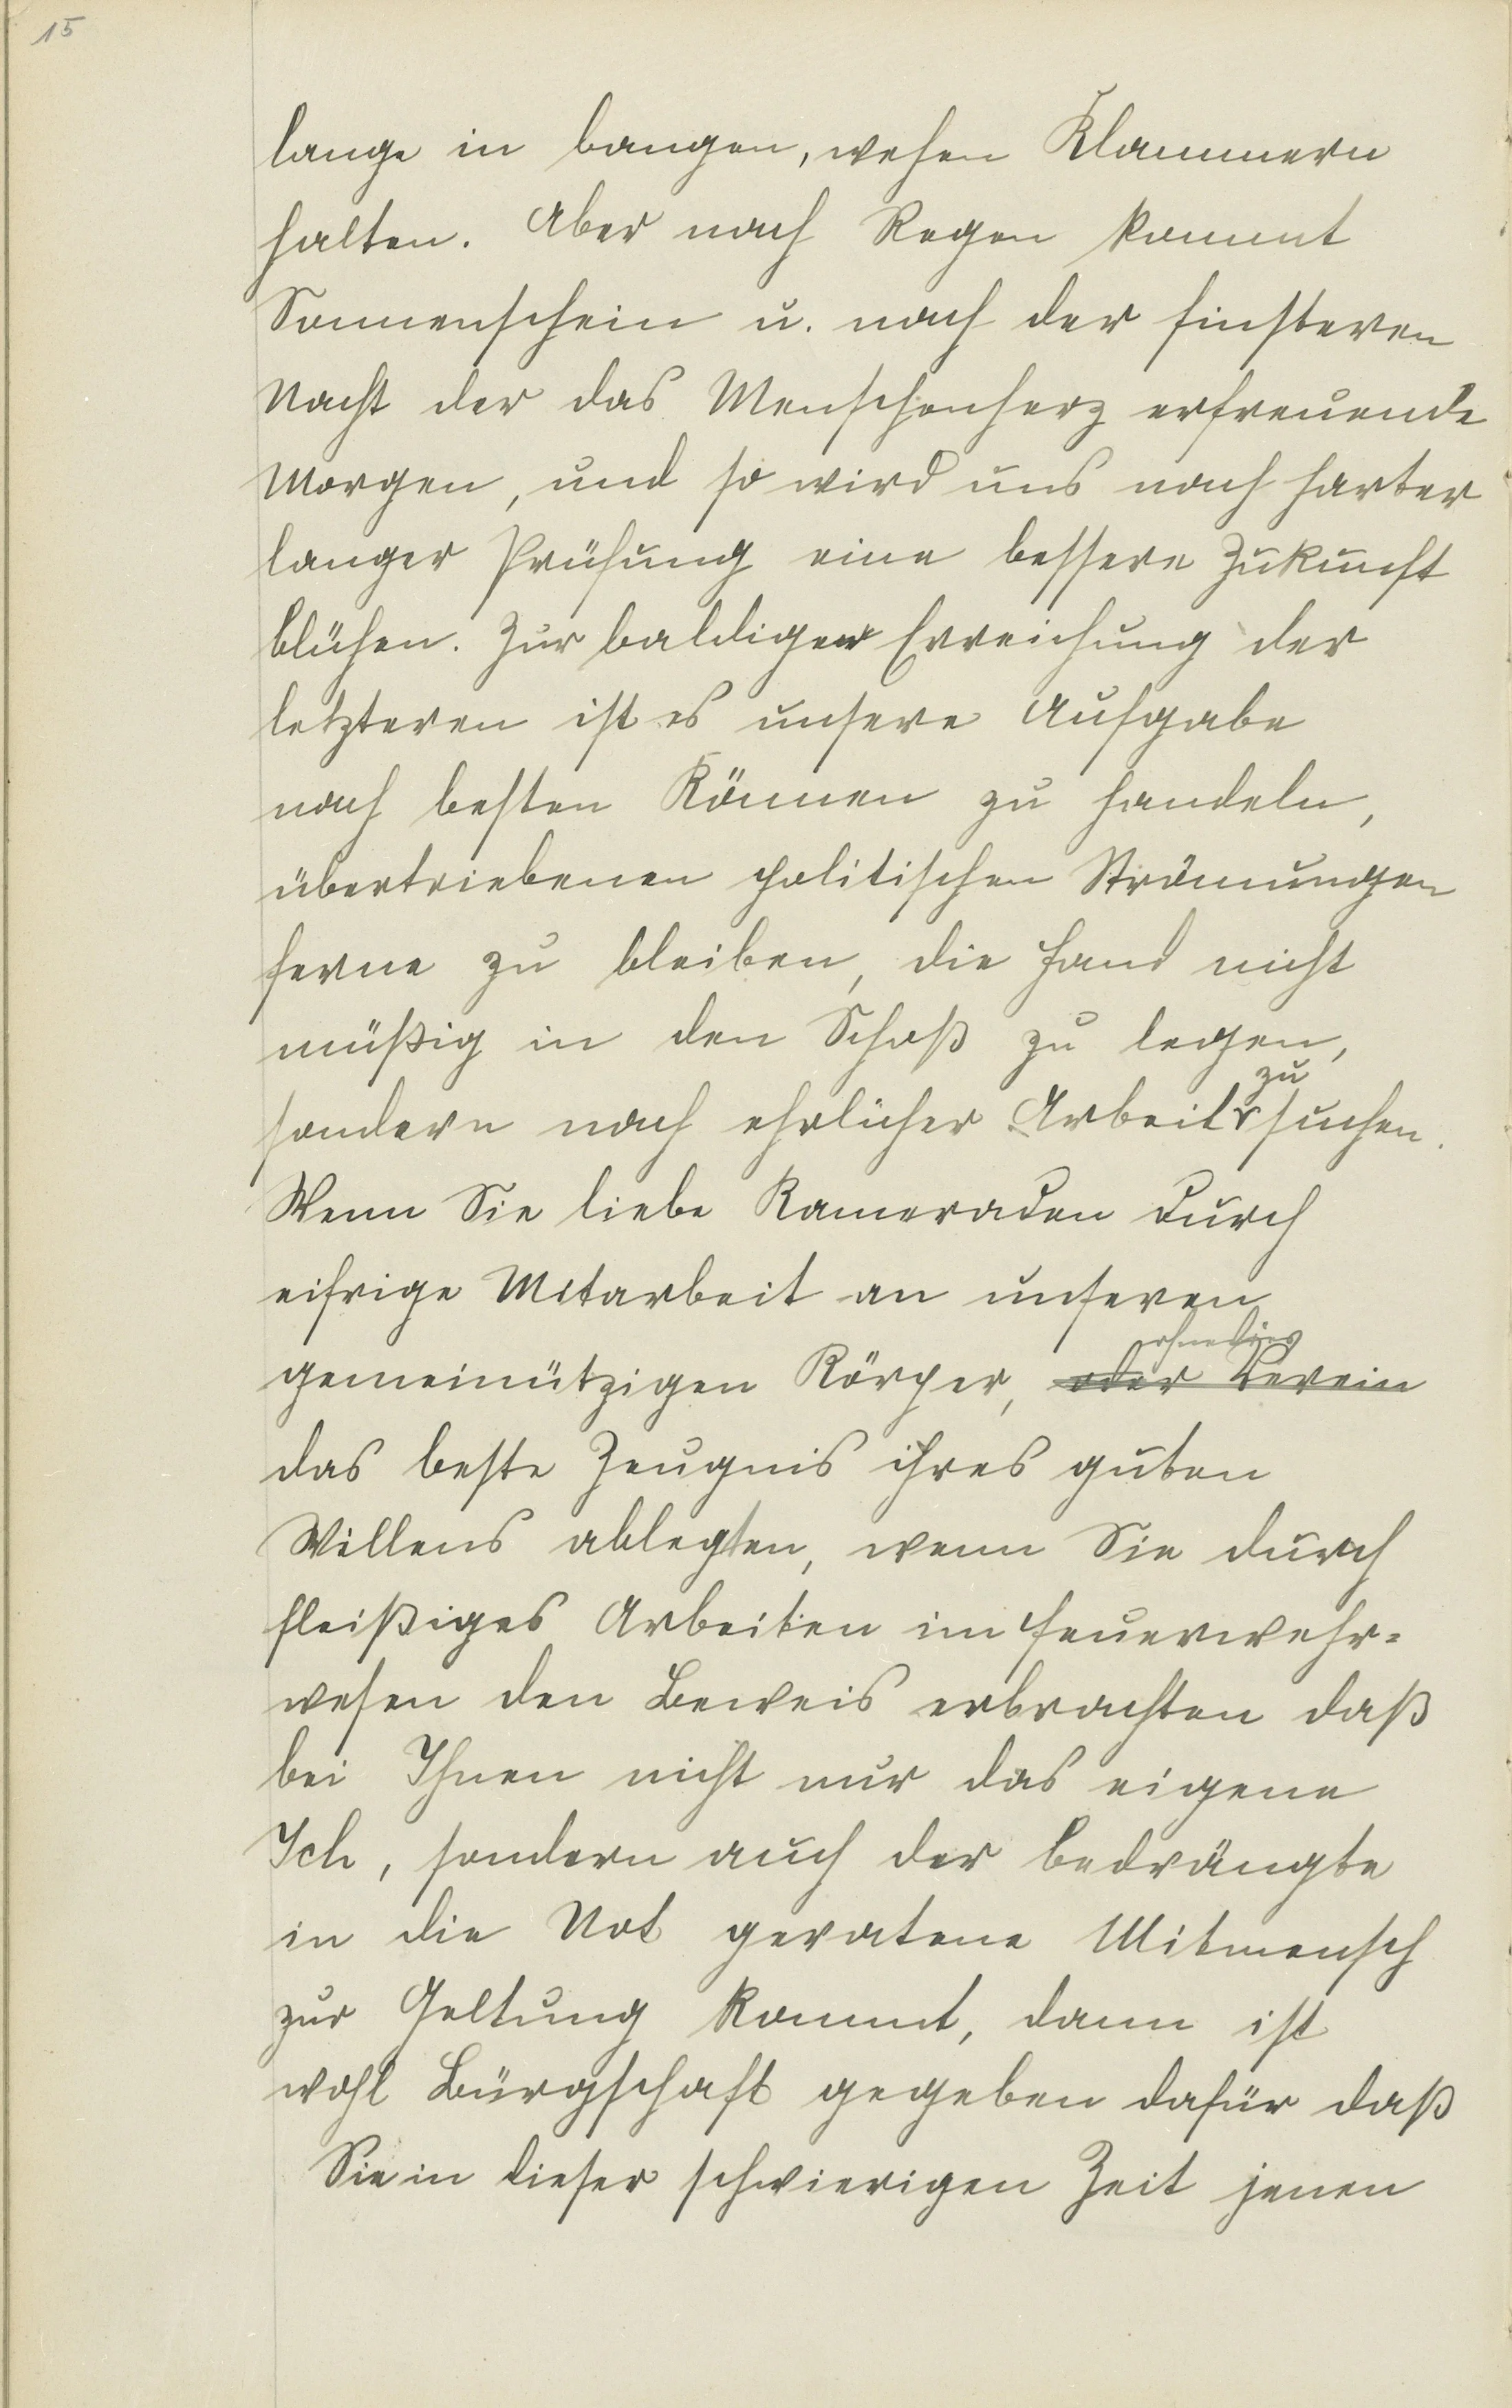 15
lange in bangen, wehen Klammern
halten. Aber nach Regen kommt
Sonnenschein u. nach der finsteren
Nacht der das Menschenherz erfreuende
Morgen, und so wird uns nach harter
langer Prüfung eine bessere Zukunft
blühen. Zur baldigen Erreichung der
letzteren ist es unsere Aufgabe
nach besten Können zu handeln,
übertriebenen politischen Strömungen
ferne zu bleiben, die Hand nicht
müßig in den Schoß zu legen,
zu
sondern nach ehrlicher Arbeit suchen.
Wenn Sie liebe Kameraden durch
eifrige Mitarbeit an unseren
gemeinützigen Körper, oder Verein
das beste Zeugnis ihres guten
Willens ablegten, wenn Sie durch
fleißiges Arbeiten im Feuerwehr=
wesen den Beweis erbrachten daß
bei Ihnen nicht nur das eigene
Ich, sondern auch der bedrängte
in die Not geratene Mitmensch
zur Geltung kommt, dann ist
wohl Bürgschaft gegeben dafür daß
Sie in dieser schwierigen Zeit jenen